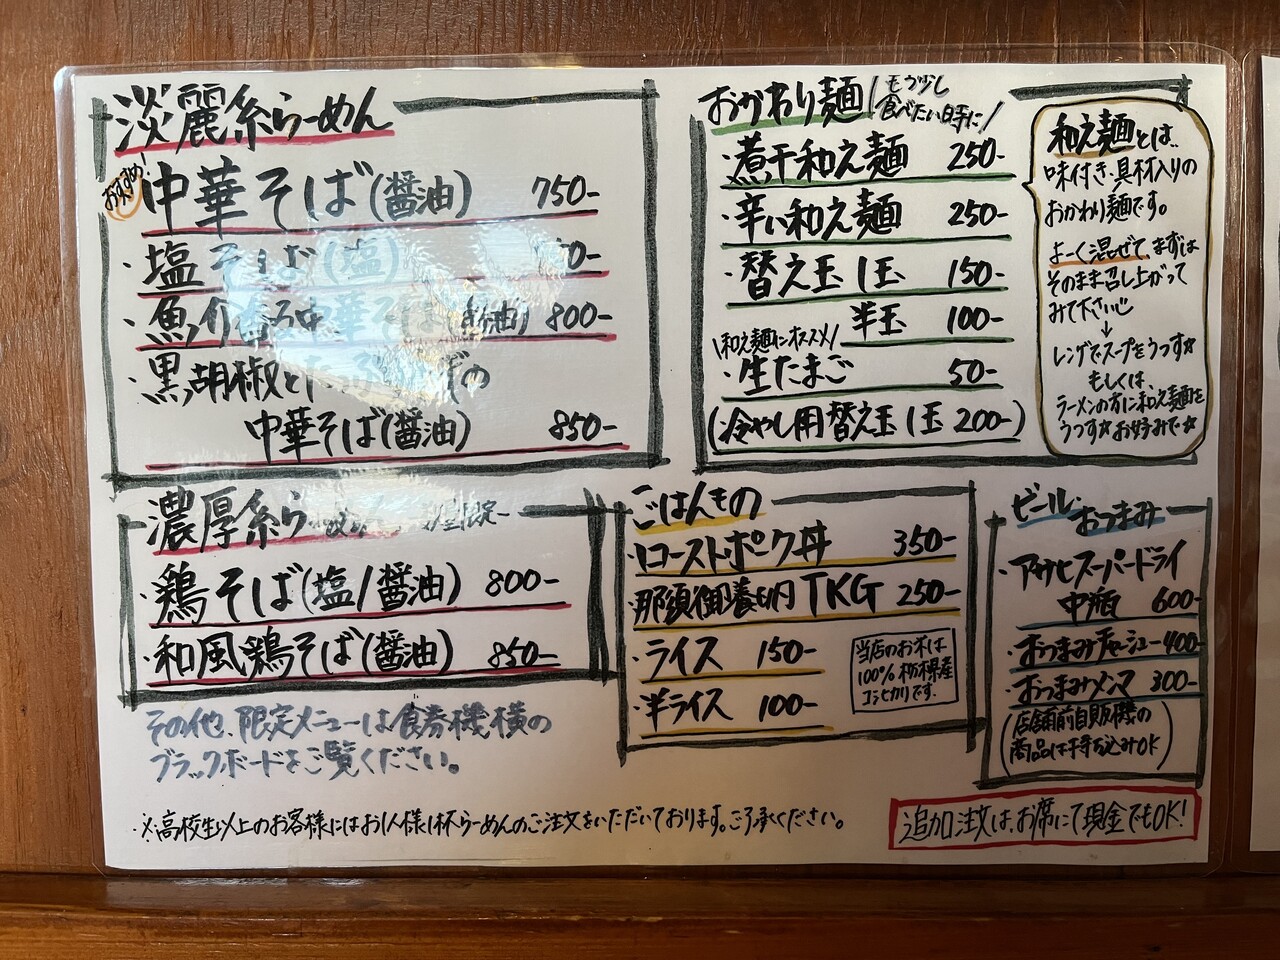 淡麗系らーめん
おすすめ!
中華そば(醤油) 750-
・塩そば(塩)
中華そば(醤油) 800-
・黒胡椒と
中華そば(醤油) 850-
濃厚系ら
・鶏そば(塩/醤油) 800-
・和風鶏そば(醤油) 850-
その他、限定メニューは食券機横の
ブラックボードをご覧ください。
おかわり麺 もう少し
食べたい時に
・煮干和え麺 250-
・辛い和え麺 250-
・替え玉 1玉 150-
半玉 100-
和え麺にオススメ
・生たまご 50-
(冷やし用替え玉 1玉 200-)
和え麺とは、
味付き・具材入りの
おかわり麺です。
よーく混ぜて、まずは
そのまま召し上がって
みて下さい
↓
レンゲでスープをうつす☆
もしくは、
ラーメンの方に和え麺を
うつす☆お好みで☆
ごはんもの
・ローストポーク丼 350-
・那須御養卵TKG 250-
・ライス 150-
・半ライス 100-
当店のお米は
100%栃木県産
コシヒカリです。
ビール・おつまみ
・アサヒスーパードライ
中瓶 600-
・おつまみチャーシュー 400-
・おつまみメンマ 300-
(店舗前自販機の
商品は持ち込みOK)
※高校生以上のお客様にはお1人様1杯らーめんのご注文をいただいております。ご了承ください。
追加注文は、お席にて現金でもOK!